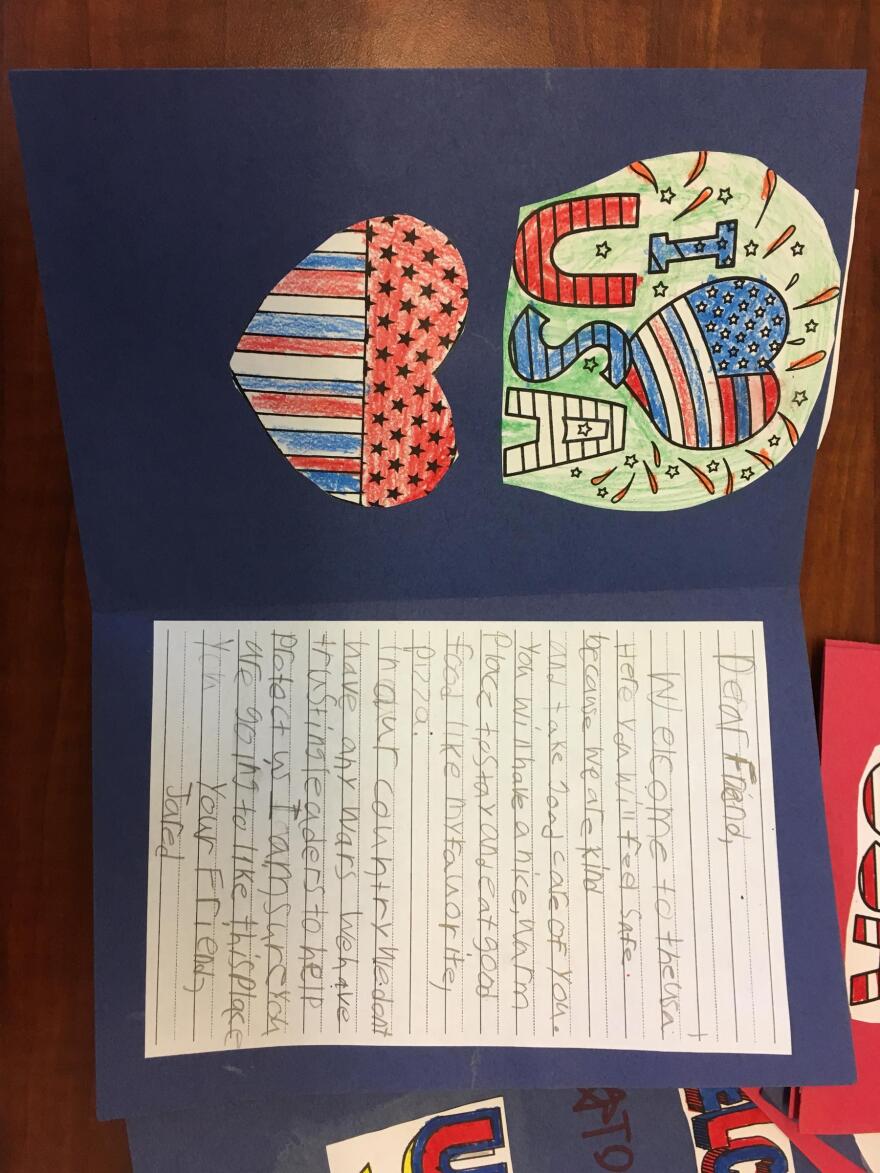 I
USA
Dear Friend,
Welcome to the usa
Here you will feel safe.
because we are kind
and take good care of you.
You will have a nice, warm
Place to stay and eat good
food like my favorite,
pizza.
In our country we dont
have any wars we have
trusting leaders to help
protect us I am sure you
are going to like this place
Your Friend,
Jared
U
TO